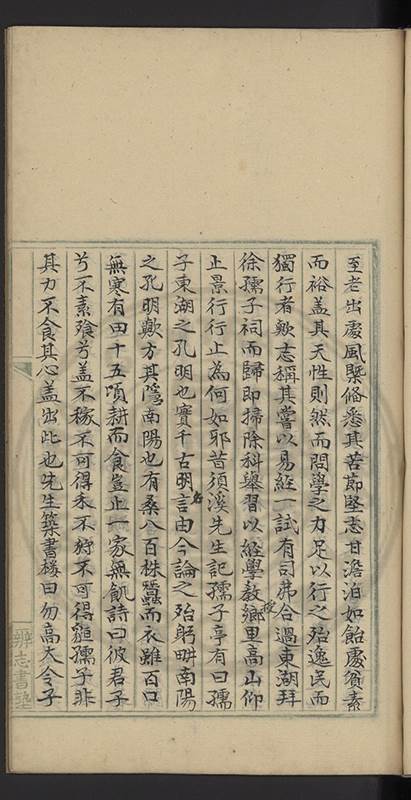 至老出處風槩脩悉其苦節堅志甘澹泊如飴處貧素
而裕蓋其天性則然而問學之力足以行之殆逸民而
獨行者歟志稱其嘗以易經一試有司弗合遇東湖拜
徐孺子祠而歸即掃除科舉習以經學教授鄉里高山仰
止景行行止為何如耶昔須溪先生記孺子亭有曰孺
子東湖之孔明也實千古名言由今論之殆躬畊南陽
之孔明歟方其隱南陽也有桑八百株蠶而衣雖百口
無寒有田十五頃耕而食豈止一家無飢詩曰彼君子
兮不素飱兮蓋不稼不可得禾不狩不可得貆孺子非
其力不食其心蓋出此也先生築書樓曰勿高大令子
辨志書塾